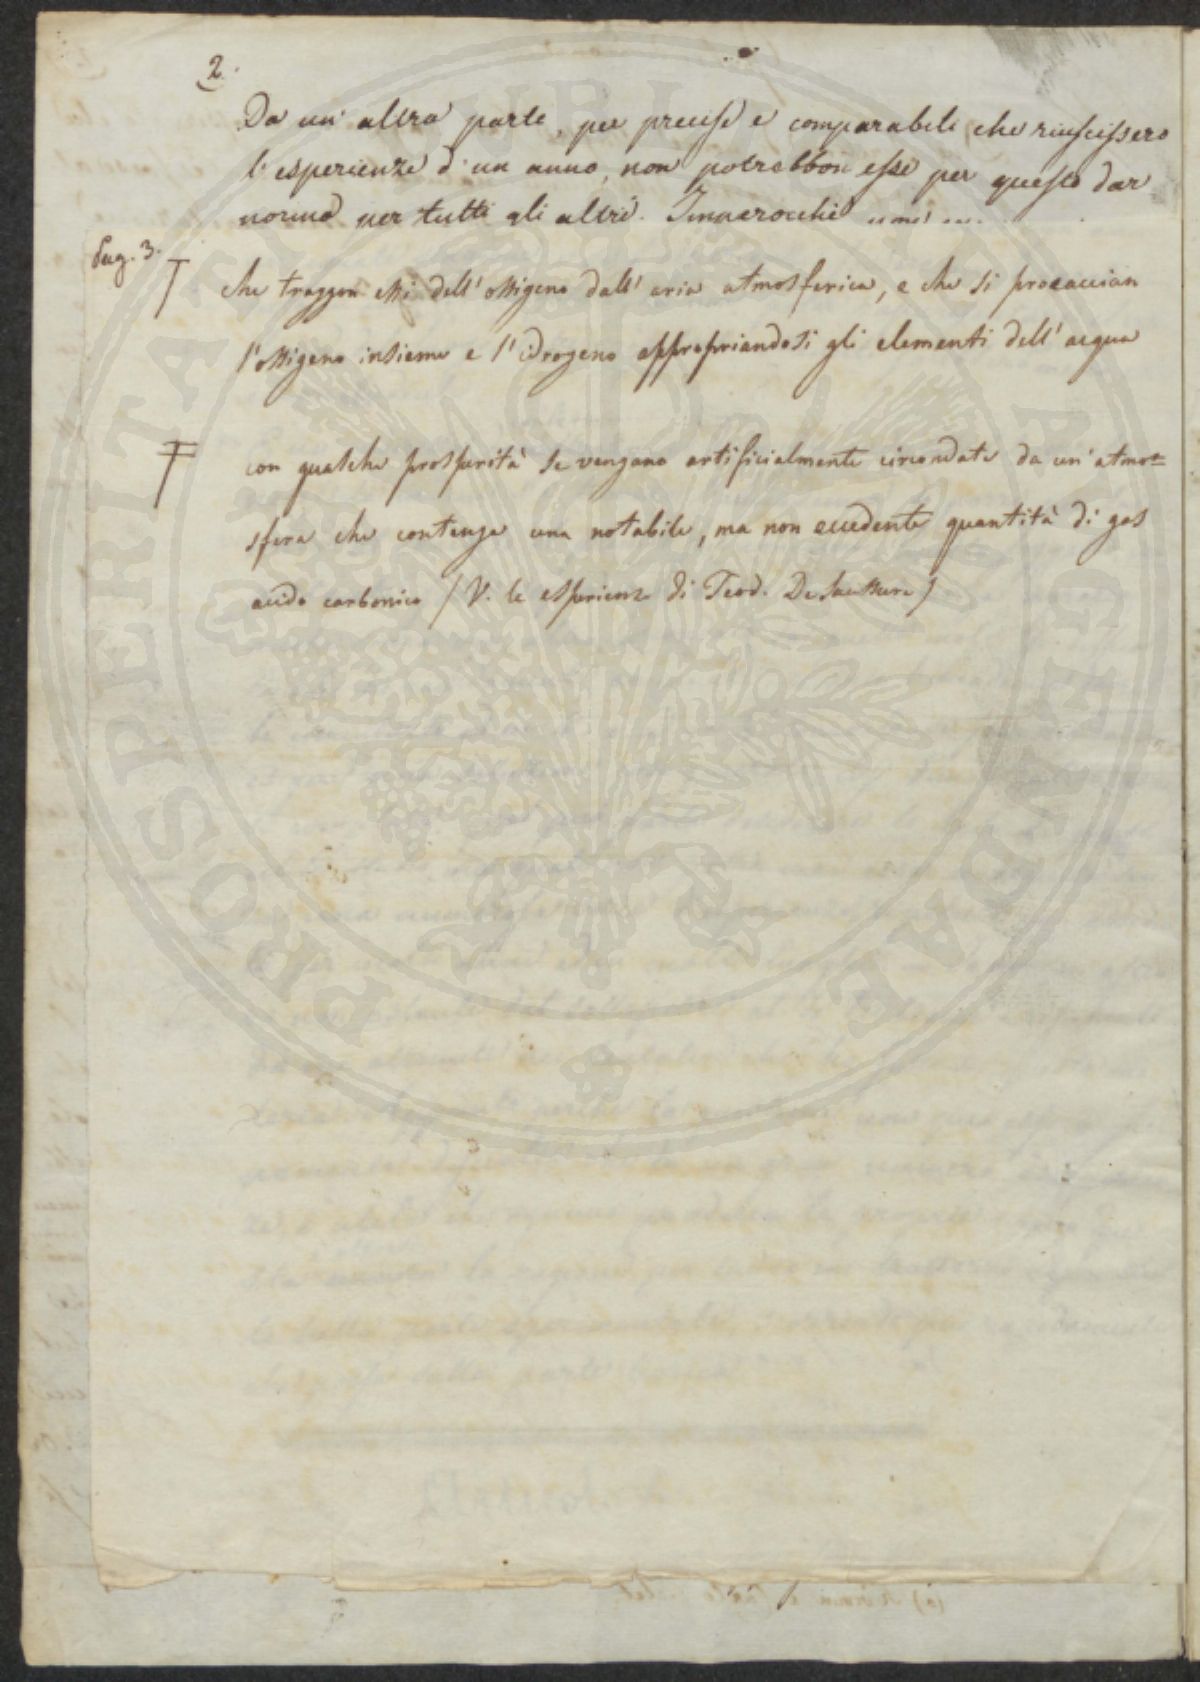 2.
Da un' altra parte, per precise e comparabili che riuscissero
l'esperienze d'un anno, non potrebbon esse per questo dar
norma per tutti gli altri. Imperocchè
Pag. 3.
che traggon essi dell'ossigeno dall'aria atmosferica, e che si procaccian
l'ossigeno insieme e l'idrogeno appropriandosi gli elementi dell'acqua
con qualche prosperità se vengano artificialmente circondate da un'atmo=
sfera che contenga una notabile, ma non eccedente quantità di gas
acido carbonico (V. le esperienze di Teod. De Saussure)
PROSPERITATI PUBLICAE AUGENDAE